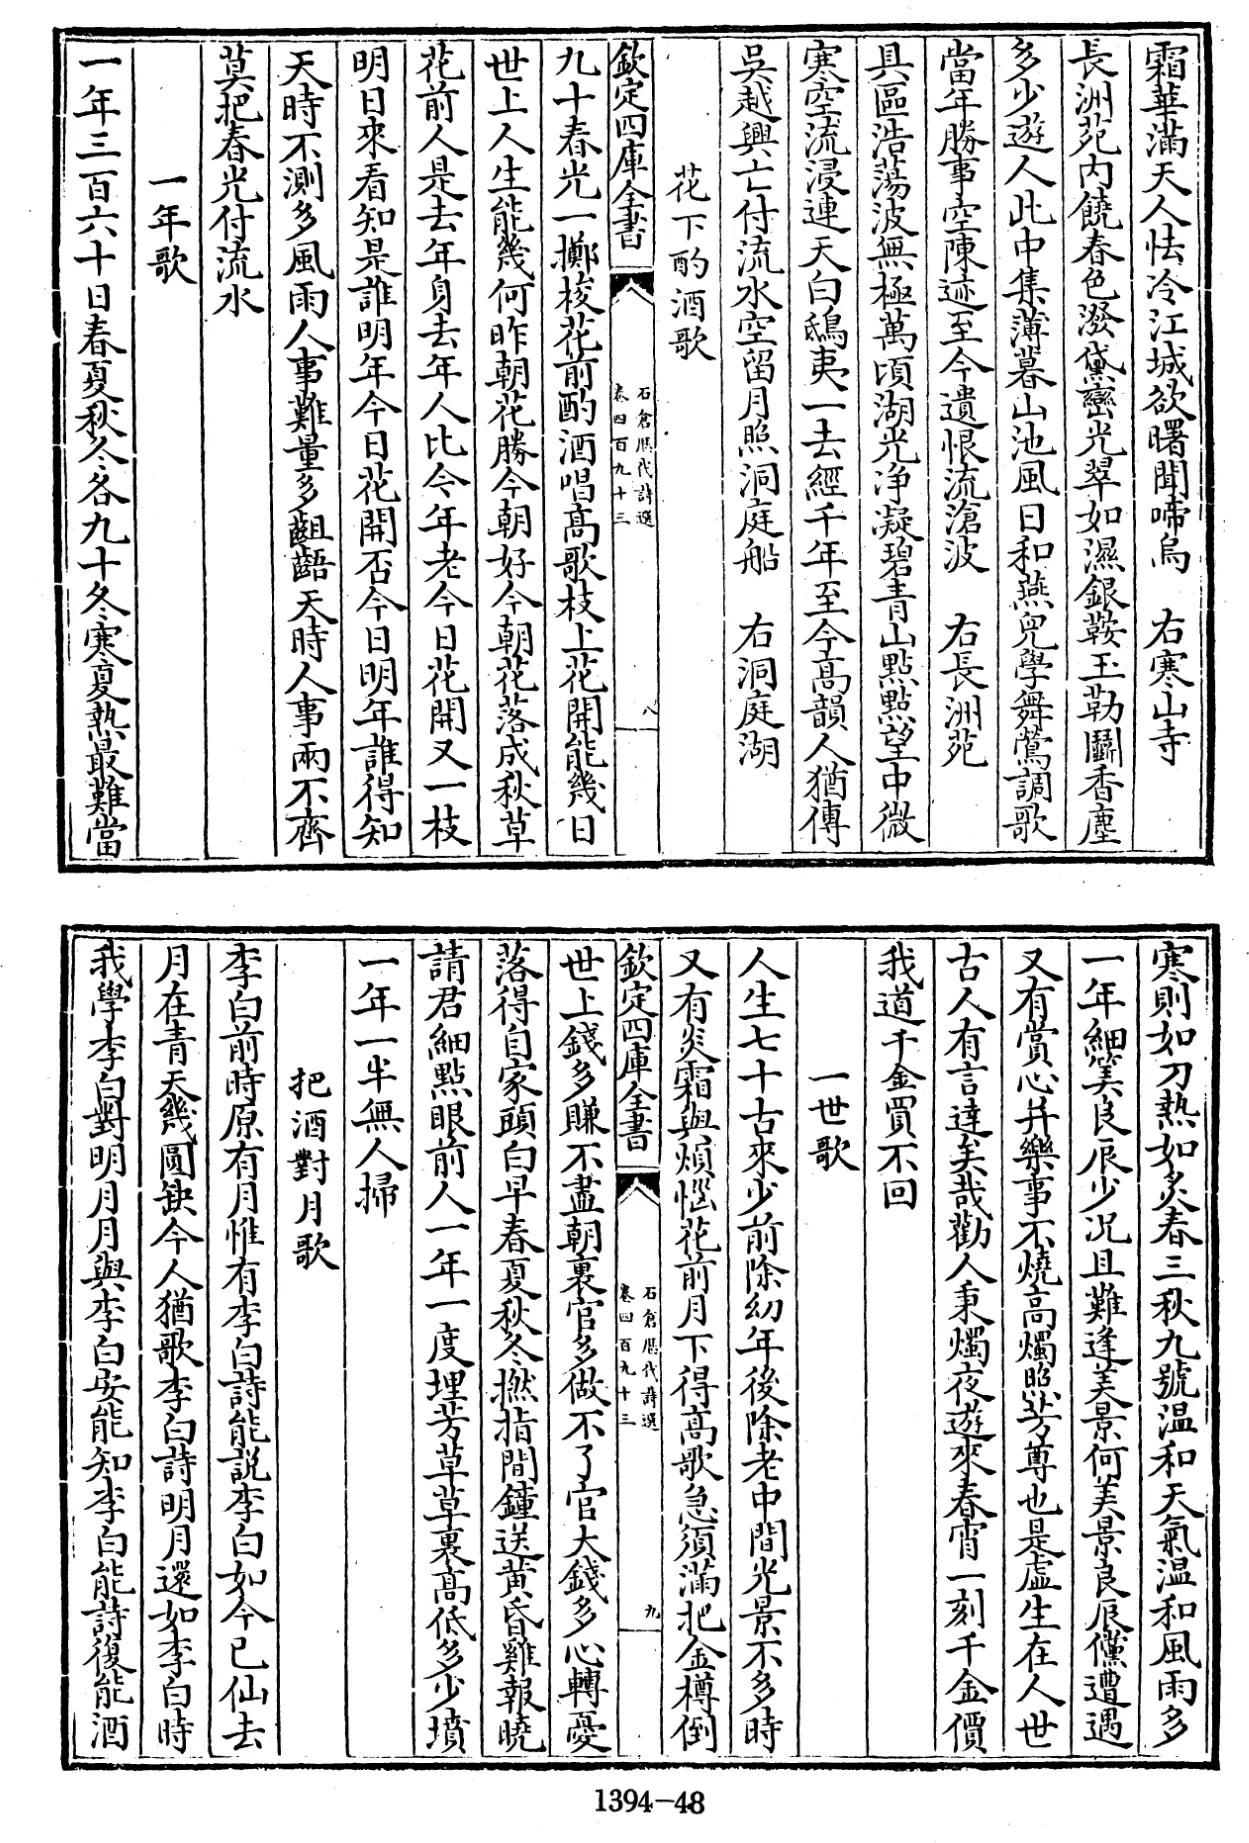 霜華滿天人怯冷江城欲曙聞啼烏　右寒山寺
長洲苑内饒春色潑黛巒光翠如濕銀鞍玉勒鬬香塵
多少遊人此中集薄暮山池風日和燕兒學舞鶯調歌
當年勝事空陳迹至今遺恨流滄波　右長洲苑
具區浩蕩波無極萬頃湖光浄凝碧青山點點望中微
寒空流浸連天白鴟夷一去經千年至今高韻人猶傳
吳越興亡付流水空留月照洞庭船　右洞庭湖
花下酌酒歌
欽定四庫全書
石倉歷代詩選
卷四百九十三
八
九十春光一擲梭花前酌酒唱高歌枝上花開能幾日
世上人生能幾何昨朝花勝今朝好今朝花落成秋草
花前人是去年身去年人比今年老今日花開又一枝
明日來看知是誰明年今日花開否今日明年誰得知
天時不測多風雨人事難量多齟齬天時人事兩不齊
莫把春光付流水
一年歌
一年三百六十日春夏秋冬各九十冬寒夏熱最難當
寒則如刀熱如炙春三秋九號温和天氣温和風雨多
一年細筭良辰少况且難逢美景何美景良辰儻遭遇
又有賞心并樂事不燒高燭照芳尊也是虚生在人世
古人有言達矣哉勸人秉燭夜遊來春宵一刻千金價
我道千金買不回
一世歌
人生七十古來少前除幼年後除老中間光景不多時
又有炎霜與煩惱花前月下得高歌急須滿把金樽倒
欽定四庫全書
石倉歷代詩選
卷四百九十三
九
世上錢多賺不盡朝裏官多做不了官大錢多心轉憂
落得自家頭白早春夏秋冬撚指間鐘送黄昏雞報曉
請君細點眼前人一年一度埋芳草草裏高低多少墳
一年一半無人掃
把酒對月歌
李白前時原有月惟有李白詩能説李白如今已仙去
月在青天幾圓缺今人猶歌李白詩明月還如李白時
我學李白對明月月與李白安能知李白能詩復能酒
1394-48